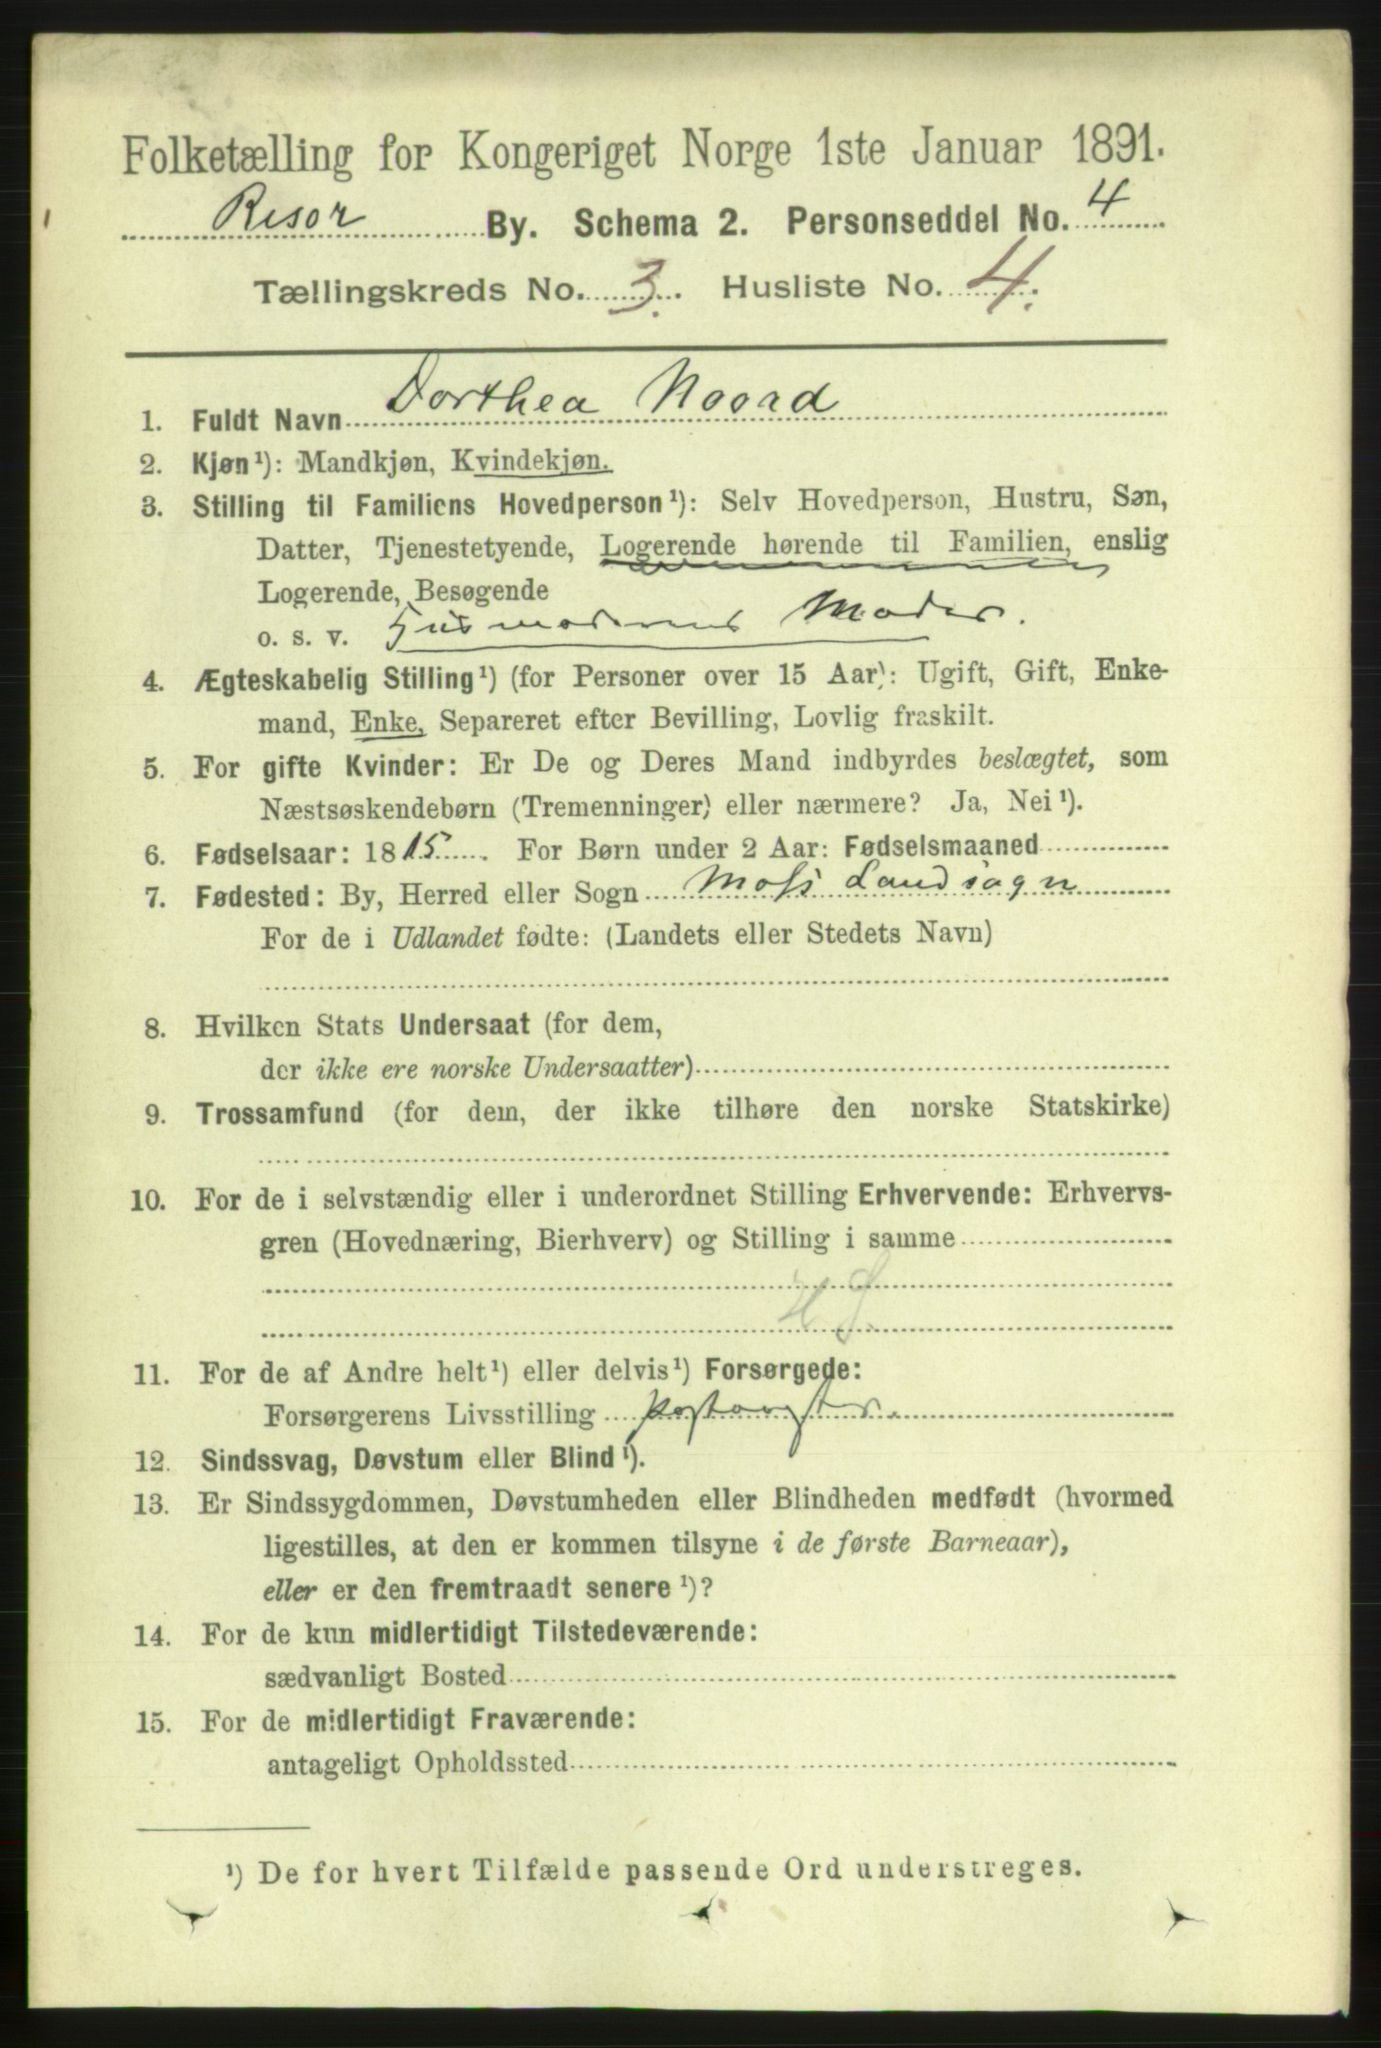 Folketælling for Kongeriget Norge 1ste Januar 1891.
Risør By. Schema 2. Personseddel No. 4
Tællingskreds No. 3. Husliste No. 4.
1. Fuldt Navn Dorthea Noord
2. Kjøn¹): Mandkjøn, Kvindekjøn.
3. Stilling til Familiens Hovedperson¹): Selv Hovedperson, Hustru, Søn,
Datter, Tjenestetyende, Logerende hørende til Familien, enslig
Logerende, Besøgende
o. s. v. Husmoderens Moder.
4. Ægteskabelig Stilling¹) (for Personer over 15 Aar): Ugift, Gift, Enke-
mand, Enke, Separeret efter Bevilling, Lovlig fraskilt.
5. For gifte Kvinder: Er De og Deres Mand indbyrdes beslægtet, som
Næstsøskendebørn (Tremenninger) eller nærmere? Ja, Nei¹).
6. Fødselsaar: 1815. For Børn under 2 Aar: Fødselsmaaned
7. Fødested: By, Herred eller Sogn Moss Landsogn
For de i Udlandet fødte: (Landets eller Stedets Navn)
8. Hvilken Stats Undersaat (for dem,
der ikke ere norske Undersaatter)
9. Trossamfund (for dem, der ikke tilhøre den norske Statskirke)
10. For de i selvstændig eller i underordnet Stilling Erhvervende: Erhvervs-
gren (Hovednæring, Bierhverv) og Stilling i samme
11. For de af Andre helt¹) eller delvis¹) Forsørgede:
Forsørgerens Livsstilling
12. Sindssvag, Døvstum eller Blind¹).
13. Er Sindssygdommen, Døvstumheden eller Blindheden medfødt (hvormed
ligestilles, at den er kommen tilsyne i de første Barneaar),
eller er den fremtraadt senere¹)?
14. For de kun midlertidigt Tilstedeværende:
sædvanligt Bosted
15. For de midlertidigt Fraværende:
antageligt Opholdssted
¹) De for hvert Tilfælde passende Ord understreges.